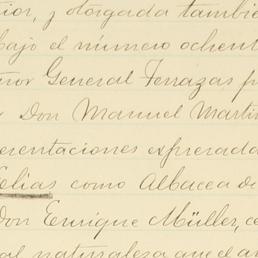 rior, y otorgada tambie
bajo el número ochent
eñor General Terrazas p
r Don Manuel Martin
resentaciones expresada
Celias como Albacea de
Don Enrique Müller, ce
al naturaleza que el an